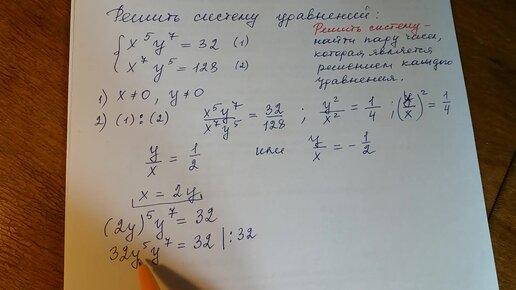 Решить систему уравнений:
{ x⁵y⁷ = 32 (1)
x⁷y⁵ = 128 (2)
Решить систему –
найти пару чисел,
которая является
решением каждого
уравнения.
1) x ≠ 0, y ≠ 0
2) (1) : (2) x⁵y⁷/x⁷y⁵ = 32/128 ; y²/x² = 1/4 ; (y/x)² = 1/4
y/x = 1/2 или y/x = -1/2
x = 2y
(2y)⁵y⁷ = 32
32y⁵y⁷ = 32 | : 32